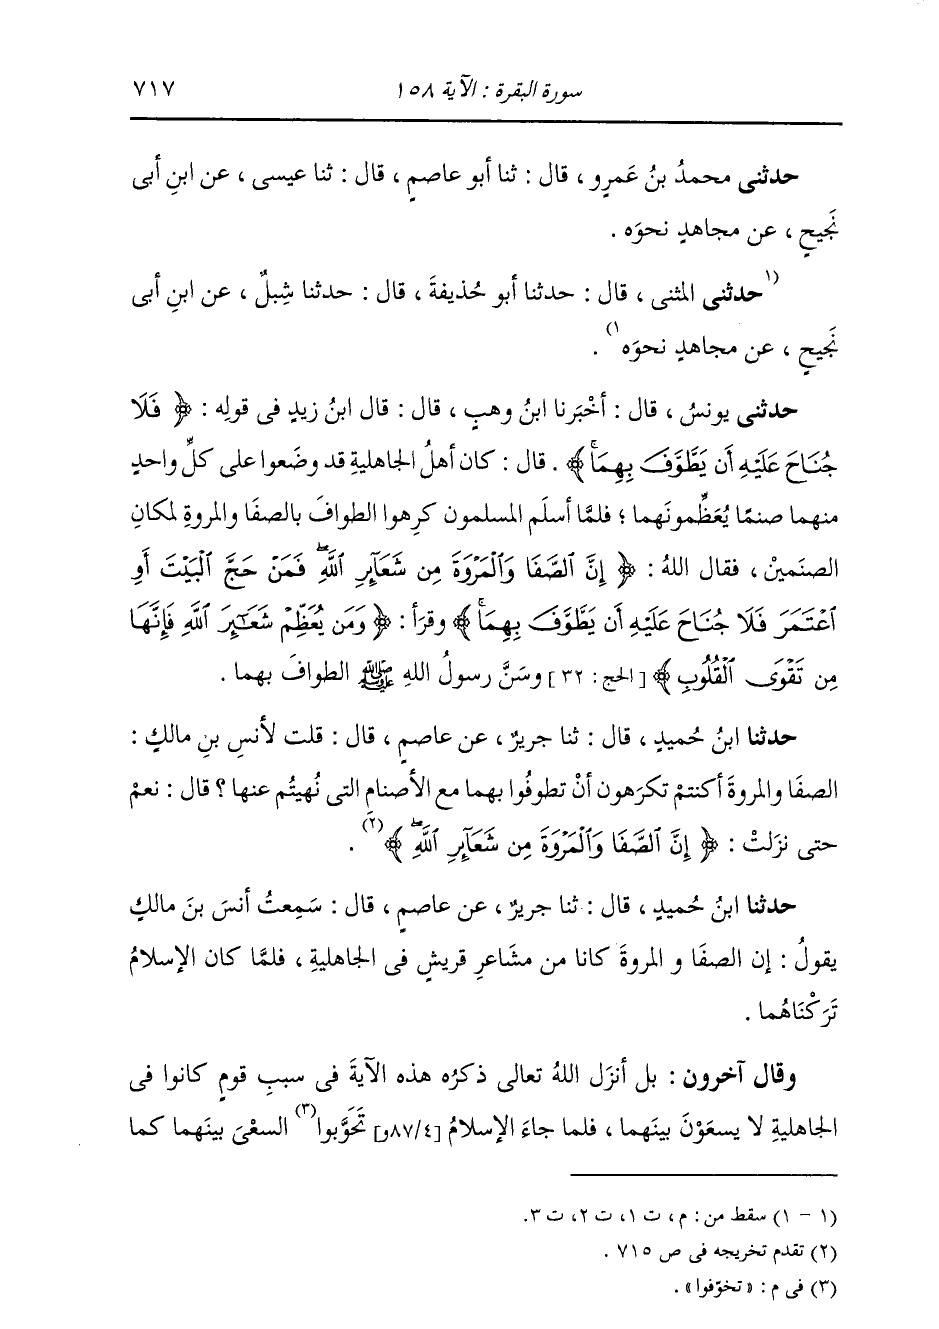 سورة البقرة : الآية ١٥٨ ٧١٧
حدثنى محمدُ بنُ عَمرٍو ، قال : ثنا أبو عاصمٍ ، قال : ثنا عيسى ، عن ابنِ أبى
نَجيحٍ ، عن مجاهدٍ نحوَه .
(١حدثنى المثنى ، قال : حدثنا أبو حُذيفةَ ، قال : حدثنا شِبلٌ ، عن ابنِ أبى
نَجيحٍ ، عن مجاهدٍ نحوَه١) .
حدثنى يونسُ ، قال : أخْبَرنا ابنُ وهبٍ ، قال : قال ابنُ زيدٍ فى قولِه : ﴿ فَلَا
جُنَاحَ عَلَيْهِ أَن يَطَّوَّفَ بِهِمَاۚ ﴾ . قال : كان أهلُ الجاهليةِ قد وضَعوا على كلِّ واحدٍ
منهما صنمًا يُعَظِّمونَهما ؛ فلمَّا أسلَم المسلمون كرِهوا الطوافَ بالصفَا والمروةِ لمكانِ
الصنَمينْ ، فقال اللهُ : ﴿ إِنَّ ٱلصَّفَا وَٱلْمَرْوَةَ مِن شَعَآئِرِ ٱللَّهِۖ فَمَنْ حَجَّ ٱلْبَيْتَ أَوِ
ٱعْتَمَرَ فَلَا جُنَاحَ عَلَيْهِ أَن يَطَّوَّفَ بِهِمَاۚ ﴾ وقرَأ : ﴿ وَمَن يُعَظِّمْ شَعَٰٓئِرَ ٱللَّهِ فَإِنَّهَا
مِن تَقْوَى ٱلْقُلُوبِ ﴾ [ الحج : ٣٢ ] وسَنَّ رسولُ اللهِ ﷺ الطوافَ بهما .
حدثنا ابنُ حُميدٍ ، قال : ثنا جريرٌ ، عن عاصمٍ ، قال : قلت لأنسِ بنِ مالكٍ :
الصفَا والمروةَ أكنتمْ تكرَهون أنْ تطوفُوا بهما مع الأصنامِ التى نُهيتُم عنها ؟ قال : نعمْ
حتى نزَلتْ : ﴿ إِنَّ ٱلصَّفَا وَٱلْمَرْوَةَ مِن شَعَآئِرِ ٱللَّهِۖ ﴾(٢) .
حدثنا ابنُ حُميدٍ ، قال : ثنا جريرٌ ، عن عاصمٍ ، قال : سَمِعتُ أنسَ بنَ مالكٍ
يقولُ : إن الصفَا و المروةَ كانا من مشَاعرِ قريشٍ فى الجاهليةِ ، فلمَّا كان الإسلامُ
تَرَكْنَاهُما .
وقال آخرون : بل أنزَل اللهُ تعالى ذكرُه هذه الآيةَ فى سببِ قومٍ كانوا فى
الجاهليةِ لا يسعَوْنَ بينَهما ، فلما جاءَ الإسلامُ [٨٧/٤و] تَحَوَّبوا(٣) السعْىَ بينَهما كما
(١ - ١) سقط من : م ، ت ١، ت ٢، ت ٣.
(٢) تقدم تخريجه فى ص ٧١٥ .
(٣) فى م : « تخوّفوا » .